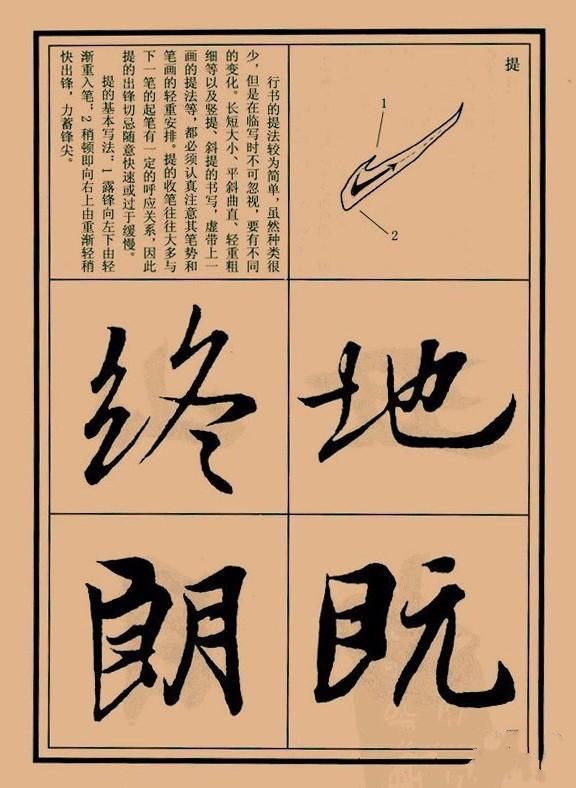 提
1
2
行书的提法较为简单，虽然种类很
少，但是在临写时不可忽视，要有不同
的变化。长短大小、平斜曲直、轻重粗
细等以及竖提、斜提的书写，虚带上一
画的提法等，都必须认真注意其笔势和
笔画的轻重安排。提的收笔往往大多与
下一笔的起笔有一定的呼应关系，因此
提的出锋切忌随意快速或过于缓慢。
提的基本写法：1 露锋向左下由轻
渐重入笔；2 稍顿即向右上由重渐轻稍
快出锋，力蓄锋尖。
地
终
既
朗